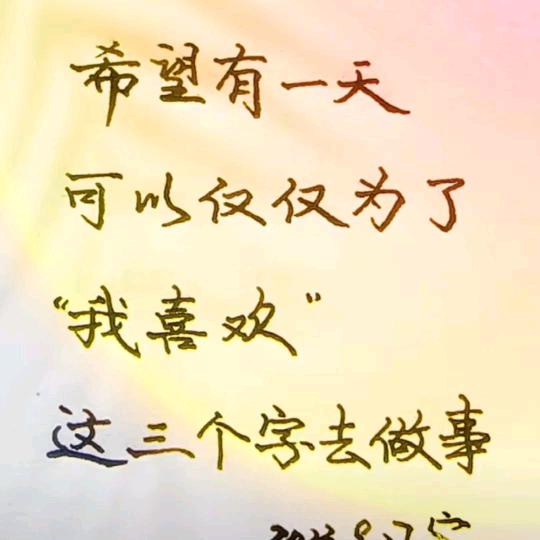 希望有一天
可以仅仅为了
“我喜欢”
这三个字去做事